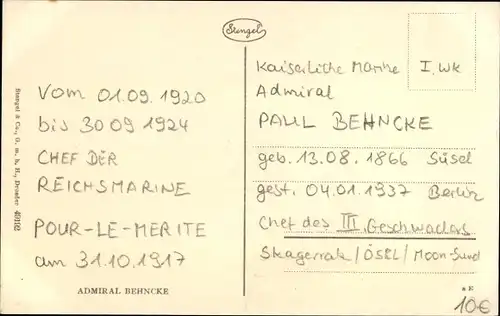 Stengel
Vom 01.09.1920
bis 30 09 1924
CHEF DER
REICHSMARINE
POUR-LE-MERITE
am 31.10.1917
Stengel & Co., G. m. b. H., Dresden 49192
ADMIRAL BEHNCKE
Kaiserliche Marine
I. WK
Admiral
PAUL BEHNCKE
geb. 13.08.1866 Süsel
gest. 04.01.1937 Berlin
Chef des III. Geschwaders
Skagerrak / ÖSEL / Moon-Sund
* E
10€